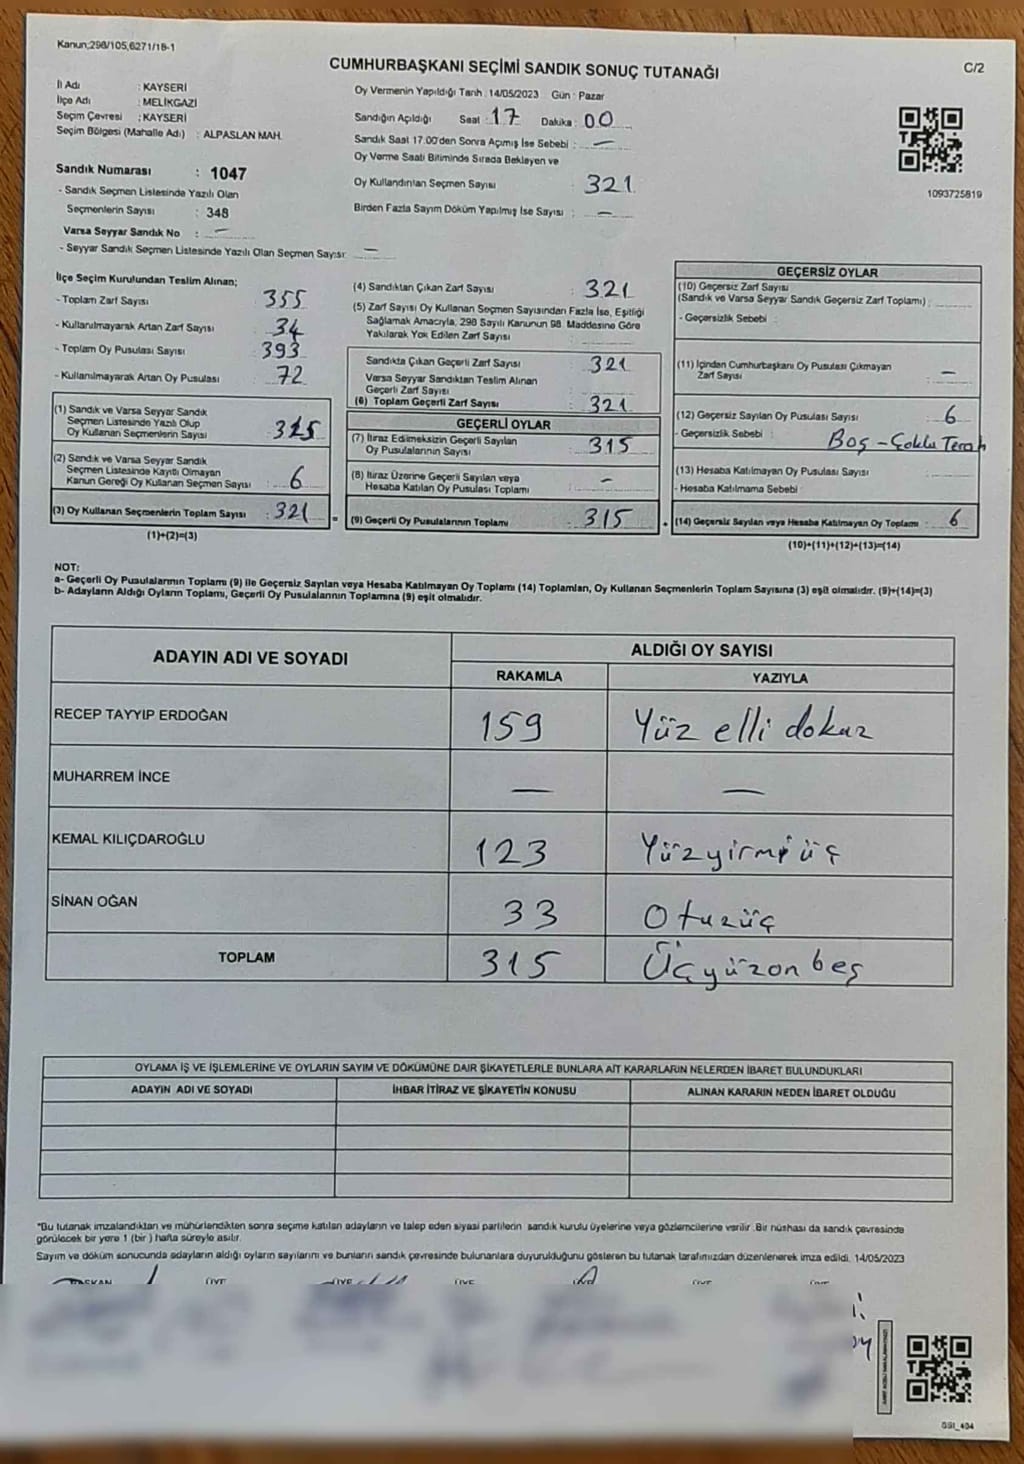 Kanun;298/105,6271/18-1
C/2
CUMHURBAŞKANI SEÇİMİ SANDIK SONUÇ TUTANAĞI
İl Adı : KAYSERİ
İlçe Adı : MELİKGAZİ
Seçim Çevresi : KAYSERİ
Seçim Bölgesi (Mahalle Adı) : ALPASLAN MAH.
Sandık Numarası : 1047
- Sandık Seçmen Listesinde Yazılı Olan
Seçmenlerin Sayısı : 348
Varsa Seyyar Sandık No : —
- Seyyar Sandık Seçmen Listesinde Yazılı Olan Seçmen Sayısı: —
Oy Vermenin Yapıldığı Tarih : 14/05/2023 Gün : Pazar
Sandığın Açıldığı Saat : 17 Dakika : 00
Sandık Saat 17.00'den Sonra Açımış İse Sebebi : —
Oy Verme Saati Bitiminde Sırada Bekleyen ve
Oy Kullandırılan Seçmen Sayısı 321
Birden Fazla Sayım Döküm Yapılmış İse Sayısı : —
1093725819
İlçe Seçim Kurulundan Teslim Alınan;
- Toplam Zarf Sayısı 355
- Kullanılmayarak Artan Zarf Sayısı : 34
- Toplam Oy Pusulası Sayısı 393
- Kullanılmayarak Artan Oy Pusulası : 72
(1) Sandık ve Varsa Seyyar Sandık
Seçmen Listesinde Yazılı Olup
Oy Kullanan Seçmenlerin Sayısı : 315
(2) Sandık ve Varsa Seyyar Sandık
Seçmen Listesinde Kayıtlı Olmayan
Kanun Gereği Oy Kullanan Seçmen Sayısı : 6
(3) Oy Kullanan Seçmenlerin Toplam Sayısı : 321
(1)+(2)=(3)
(4) Sandıktan Çıkan Zarf Sayısı : 321
(5) Zarf Sayısı Oy Kullanan Seçmen Sayısından Fazla İse, Eşitliği
Sağlamak Amacıyla, 298 Sayılı Kanunun 98. Maddesine Göre
Yakılarak Yok Edilen Zarf Sayısı :
Sandıkta Çıkan Geçerli Zarf Sayısı : 321
Varsa Seyyar Sandıktan Teslim Alınan
Geçerli Zarf Sayısı :
(6) Toplam Geçerli Zarf Sayısı : 321
GEÇERLİ OYLAR
(7) İtiraz Edilmeksizin Geçerli Sayılan
Oy Pusulalarının Sayısı : 315
(8) İtiraz Üzerine Geçerli Sayılan veya
Hesaba Katılan Oy Pusulası Toplamı : —
(9) Geçerli Oy Pusulalarının Toplamı : 315
GEÇERSİZ OYLAR
(10) Geçersiz Zarf Sayısı
(Sandık ve Varsa Seyyar Sandık Geçersiz Zarf Toplamı) :
- Geçersizlik Sebebi :
(11) İçinden Cumhurbaşkanı Oy Pusulası Çıkmayan
Zarf Sayısı : —
(12) Geçersiz Sayılan Oy Pusulası Sayısı : 6
- Geçersizlik Sebebi : Boş - Çoklu Terah
(13) Hesaba Katılmayan Oy Pusulası Sayısı :
- Hesaba Katılmama Sebebi :
(14) Geçersiz Sayılan veya Hesaba Katılmayan Oy Toplamı : 6
(10)+(11)+(12)+(13)=(14)
NOT:
a- Geçerli Oy Pusulalarının Toplamı (9) ile Geçersiz Sayılan veya Hesaba Katılmayan Oy Toplamı (14) Toplamları, Oy Kullanan Seçmenlerin Toplam Sayısına (3) eşit olmalıdır. (9)+(14)=(3)
b- Adayların Aldığı Oyların Toplamı, Geçerli Oy Pusulalarının Toplamına (9) eşit olmalıdır.
ADAYIN ADI VE SOYADI
ALDIĞI OY SAYISI
RAKAMLA YAZIYLA
RECEP TAYYIP ERDOĞAN 159 Yüz elli dokuz
MUHARREM İNCE — —
KEMAL KILIÇDAROĞLU 123 Yüzyirmi üç
SİNAN OĞAN 33 Otuzüç
TOPLAM 315 Üçyüzon beş
OYLAMA İŞ VE İŞLEMLERİNE VE OYLARIN SAYIM VE DÖKÜMÜNE DAİR ŞİKAYETLERLE BUNLARA AİT KARARLARIN NELERDEN İBARET BULUNDUKLARI
ADAYIN ADI VE SOYADI İHBAR İTİRAZ VE ŞİKAYETİN KONUSU ALINAN KARARIN NEDEN İBARET OLDUĞU
"Bu tutanak imzalandıktan ve mühürlendikten sonra seçime katılan adayların ve talep eden siyasi partilerin sandık kurulu üyelerine veya gözlemcilerine verilir. Bir nüshası da sandık çevresinde
görülecek bir yere 1 (bir ) hafta süreyle asılır.
Sayım ve döküm sonucunda adayların aldığı oyların sayılarını ve bunların sandık çevresinde bulunanlara duyurulduğunu gösteren bu tutanak tarafımızdan düzenlenerek imza edildi. 14/05/2023
BAŞKAN ÜYE ÜYE ÜYE ÜYE ÜYE